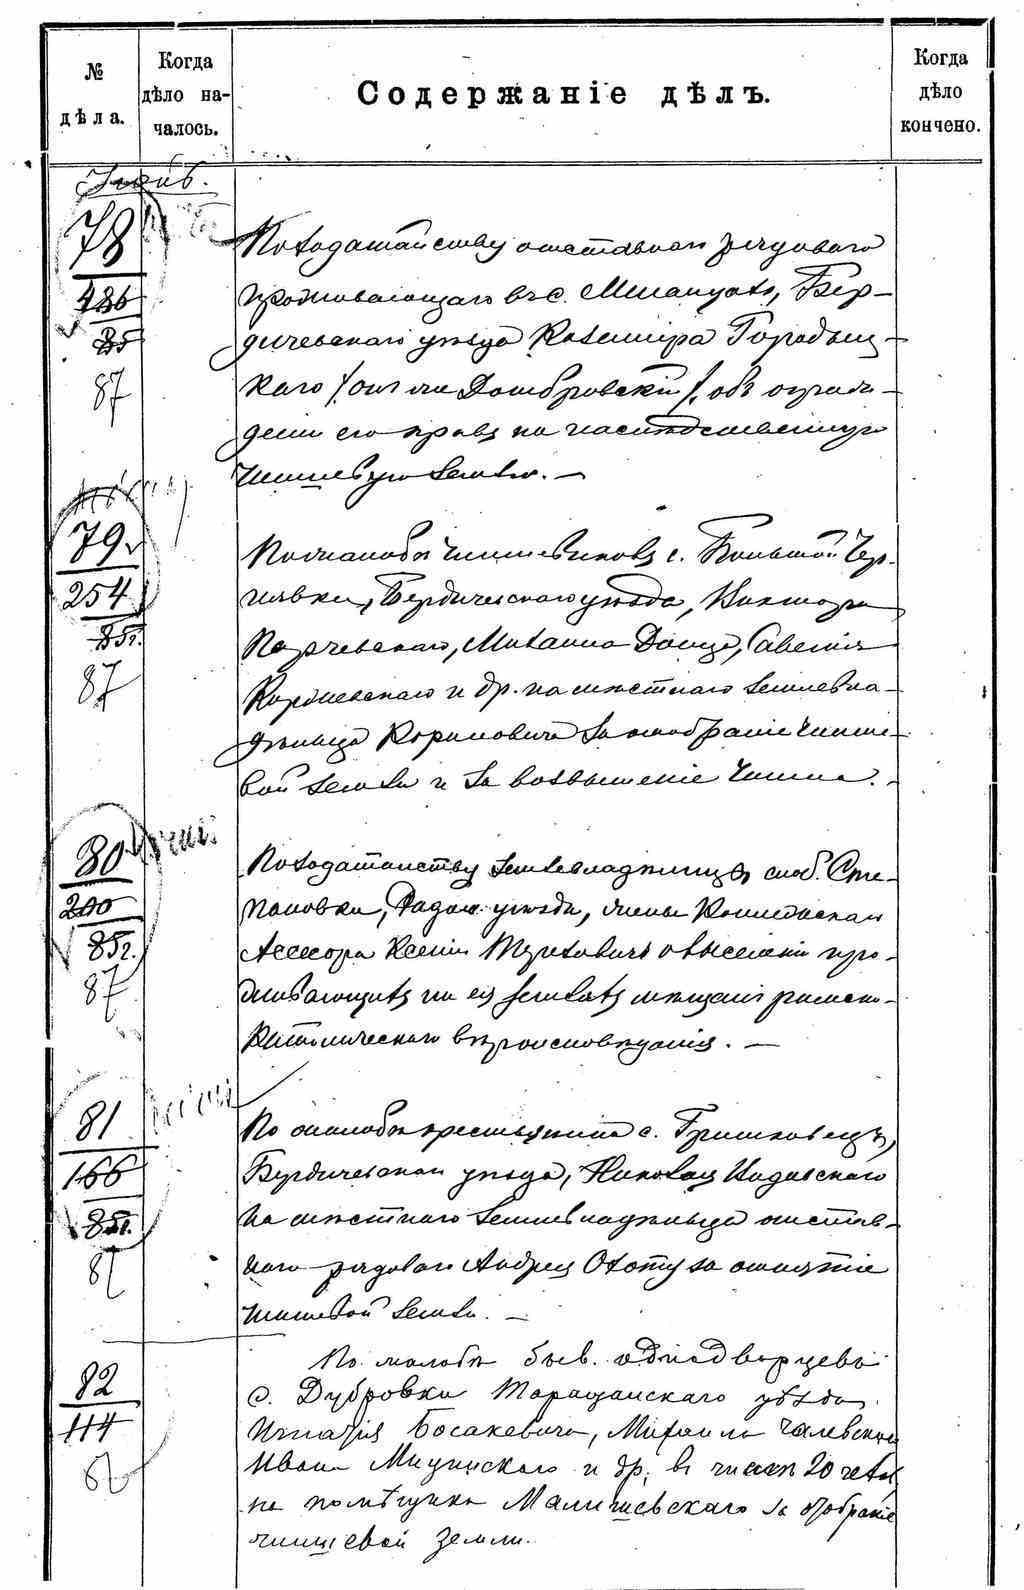 № дѣла.
Когда дѣло на-чалось.
Содержаніе дѣлъ.
Когда дѣло кончено.
78
486
85
87
По ходатайству отставнаго рядоваго
проживающаго въ с. Бер-
дичевскаго уѣзда Казиміра Городец-
каго /онъ же Домбровскій/, объ огра-
деніи его правъ на наслѣдственную
чиншевую землю. —
79
254
85г.
87
По жалобѣ чиншевиковъ с. Большой Чер-
нявки, Бердичевскаго уѣзда, Виктора
Михаила Савелія
и др. на мѣстнаго землевла-
дѣльца за отобраніе чинше-
вой земли и за возвышеніе чинша. -
80
200
85г.
87
По ходатайству землевладѣлицы слоб. Сте-
пановки, Радом. уѣзда, жены Коллежскаго
Ассесора Ксеніи о выселеніи про-
живающихъ на ея земляхъ мѣщанъ римско-
католическаго вѣроисповѣданія. —
81
166
85г.
87
По жалобѣ крестьянина с. Гришковецъ,
Бердичевскаго уѣзда, Николая
на мѣстнаго землевладѣльца отстав-
наго рядоваго Андрея за отнятіе
чиншевой земли. —
82
114
87
По жалобѣ быв. однодворцевъ
с. Дубровки Таращанскаго уѣзда
Игнатія Босакевича, Михаила
Ивана и др. въ числѣ 20 челов.
на помѣщика Малишевскаго за отобраніе
чиншевой земли.